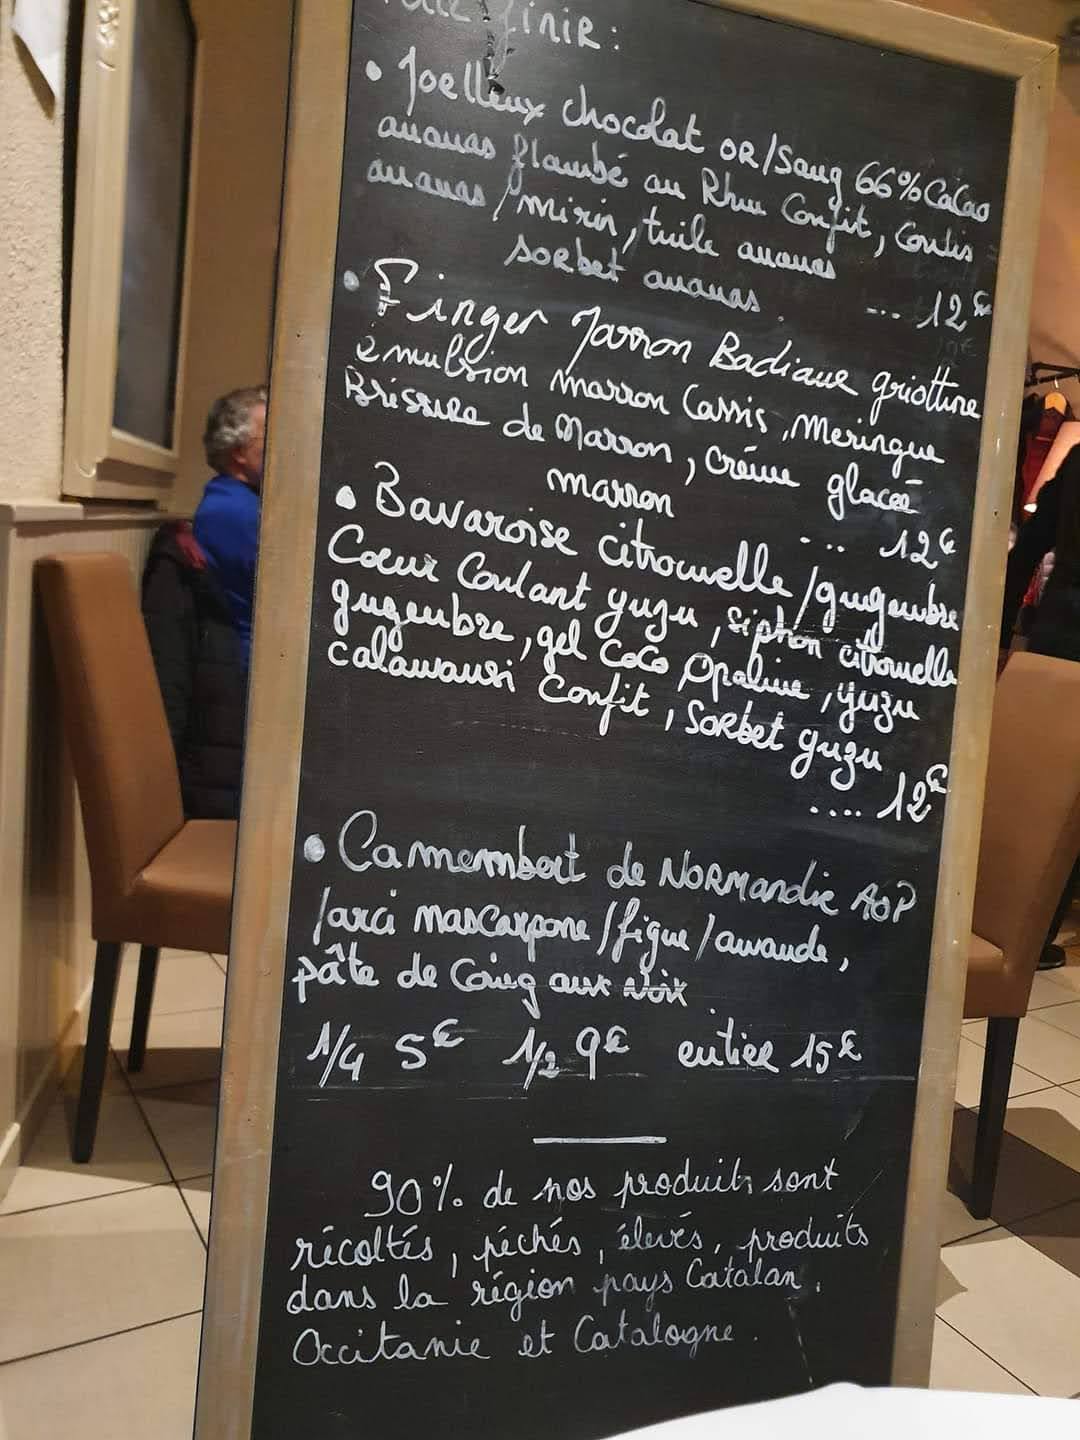 finir :
• Moelleux chocolat OR/Sang 66% Cacao
ananas flambé au Rhum Confit, Coulis
ananas/mirin, tuile ananas
sorbet ananas. ... 12€
• Finger Marron Badiane griottine
émulsion marron Cassis, Meringue
Brisure de Marron, crème glacée
marron ... 12€
• Bavaroise citrouelle/gingembre
Coeur Coulant yuzu, siphon citrouelle
gingembre, gel Coco Opaline, yuzu
calamansi confit, Sorbet yuzu
.... 12€
• Camembert de NORMandie AOP
farci mascarpone/figue/amande,
pâte de Coing aux Noix
1/4 5€ 1/2 9€ entier 15€
90% de nos produits sont
récoltés, péchés, élevés, produits
dans la région pays Catalan,
Occitanie et Catalogne.